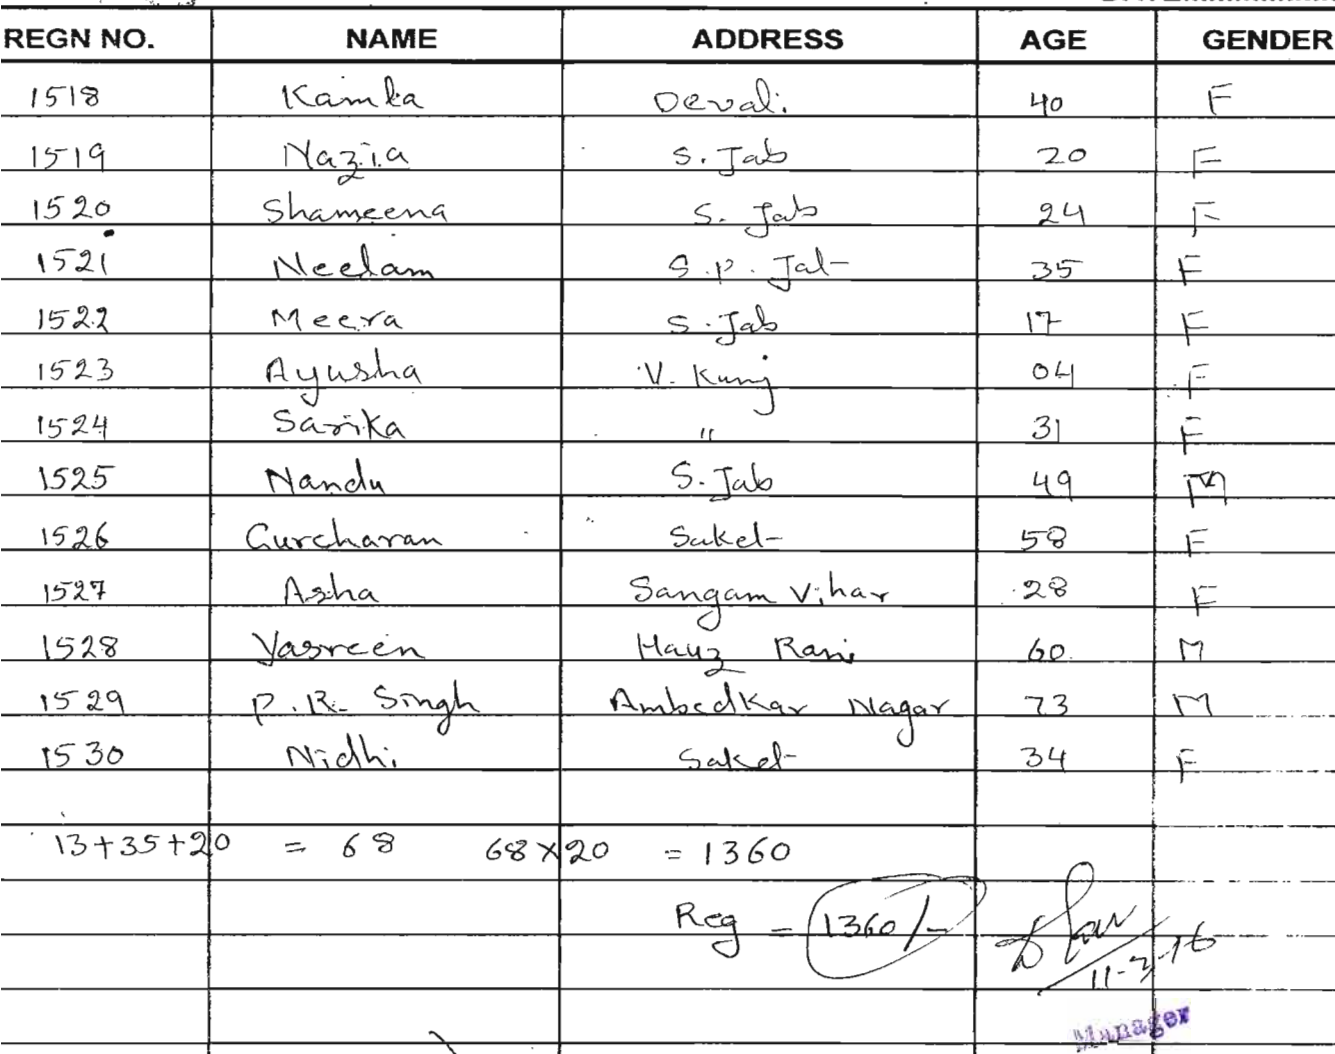 REGN NO. NAME ADDRESS AGE GENDER
1518 Kamla Devali 40 F
1519 Nazia S. Jab 20 F
1520 Shameena S. Jab 24 F
1521 Neelam S.P. Jat 35 F
1522 Meera S. Jab 17 F
1523 Ayusha V. Kunj 04 F
1524 Sarika " 31 F
1525 Nandu S. Jab 49 M
1526 Gurcharan Saket 58 F
1527 Asha Sangam Vihar 28 F
1528 Yasreen Hauz Rani 60 M
1529 P.R. Singh Ambedkar Nagar 73 M
1530 Nidhi Saket 34 F
13+35+20 = 68 68×20 = 1360
Reg = 1360/-
11-3-16
Manager